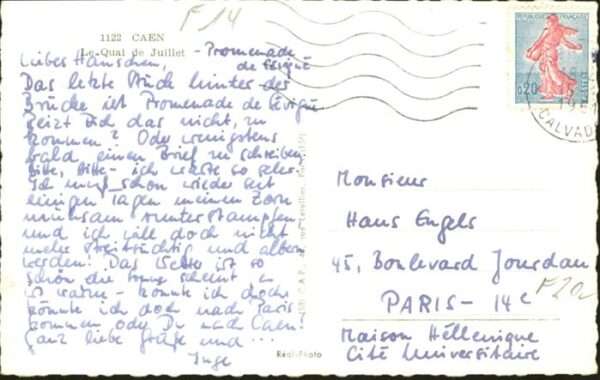 F 14
1122 CAEN
Le Quai de Juillet - Promenade
de Sévigné
Liebes Hänschen,
Das letzte Stück hinter der
Brücke ist Promenade de Sévigné
Reizt Dich das nicht, zu
kommen? Oder wenigstens
bald einen Brief zu schreiben
Bitte, bitte - ich warte so sehr.
Ich muß schon wieder seit
einigen Tagen meinen Zorn
mühsam runterstampfen
und ich will doch nicht
mehr streitsüchtig und albern
werden! Das Wetter ist so
schön die Sonne scheint
ist warm - könnte ich doch
könnte ich doch nach Paris
kommen oder Du nach Caen!
Ganz liebe Grüße und ...
Inge
REPUBLIQUE FRANÇAISE
0,20
POSTES
CALVADOS
Monsieur
Hans Engels
45, Boulevard Jourdan
PARIS - 14e
F 20
Maison Hellenique
Cité Universitaire
Réal-Photo